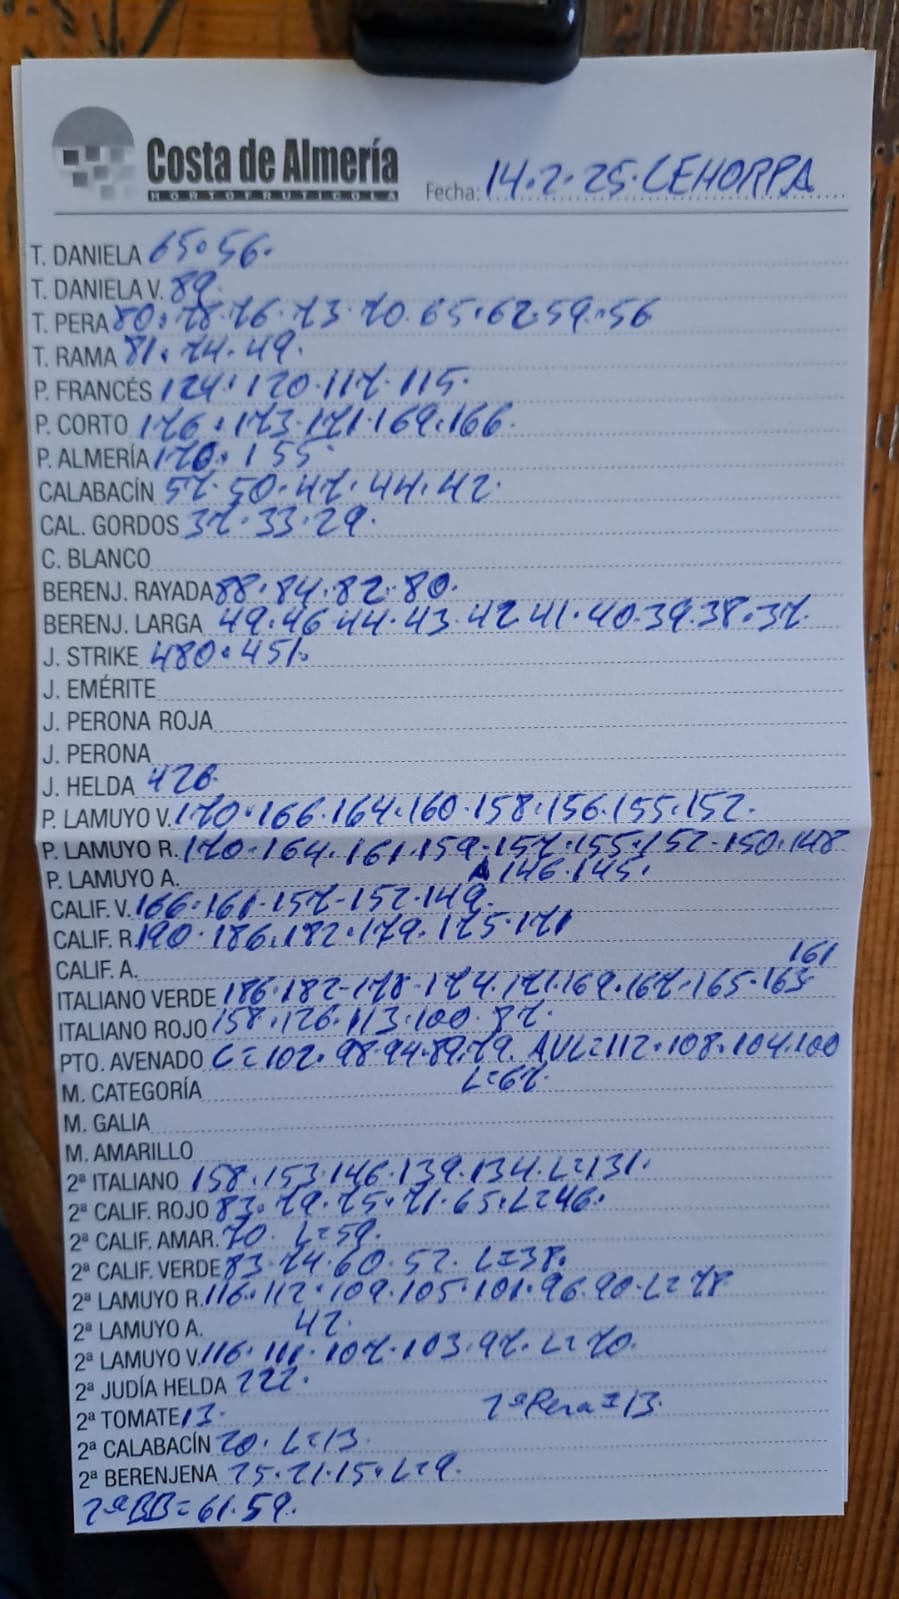 Costa de Almería
HORTOFRUTICOLA
Fecha: 14.2.25.CEHORPA
T. DANIELA 65.56.
T. DANIELA V. 89.
T. PERA 80.78.76.73.70.65.62.59.56
T. RAMA 81.74.49.
P. FRANCÉS 124.120.117.115.
P. CORTO 176.173.171.169.166.
P. ALMERÍA 170.155
CALABACÍN 57.50.47.44.42.
CAL. GORDOS 37.33.29.
C. BLANCO
BERENJ. RAYADA 88.84.82.80.
BERENJ. LARGA 49.46.44.43.42.41.40.39.38.37.
J. STRIKE 480.451.
J. EMÉRITE
J. PERONA ROJA
J. PERONA
J. HELDA
P. LAMUYO V. 170.166.164.160.158.156.155.152.
P. LAMUYO R. 170.164.161.159.157.155.152.150.148
P. LAMUYO A. 146.145.
CALIF. V. 166.161.157.152.149.
CALIF. R. 190.186.182.179.175.171
CALIF. A. 161
ITALIANO VERDE 186.182.178.174.171.169.167.165.163
ITALIANO ROJO 158.126.113.100.87.
PTO. AVENADO C=102.98.94.89.79. AVL=112.108.104.100
L=67.
M. CATEGORÍA
M. GALIA
M. AMARILLO
2ª ITALIANO 158.153.146.139.134.L=131.
2ª CALIF. ROJO 83.79.75.71.65.L=46.
2ª CALIF. AMAR. 70. L=59.
2ª CALIF. VERDE 83.74.60.52. L=38.
2ª LAMUYO R. 116.112.109.105.101.96.90.L=78
2ª LAMUYO A. 42.
2ª LAMUYO V. 116.111.107.103.97. L=70.
2ª JUDÍA HELDA 222.
2ª TOMATE 13. 2ª Pera=13.
2ª CALABACÍN 20. L=13.
2ª BERENJENA 25.21.15.L=9.
2ª BB=61.59.